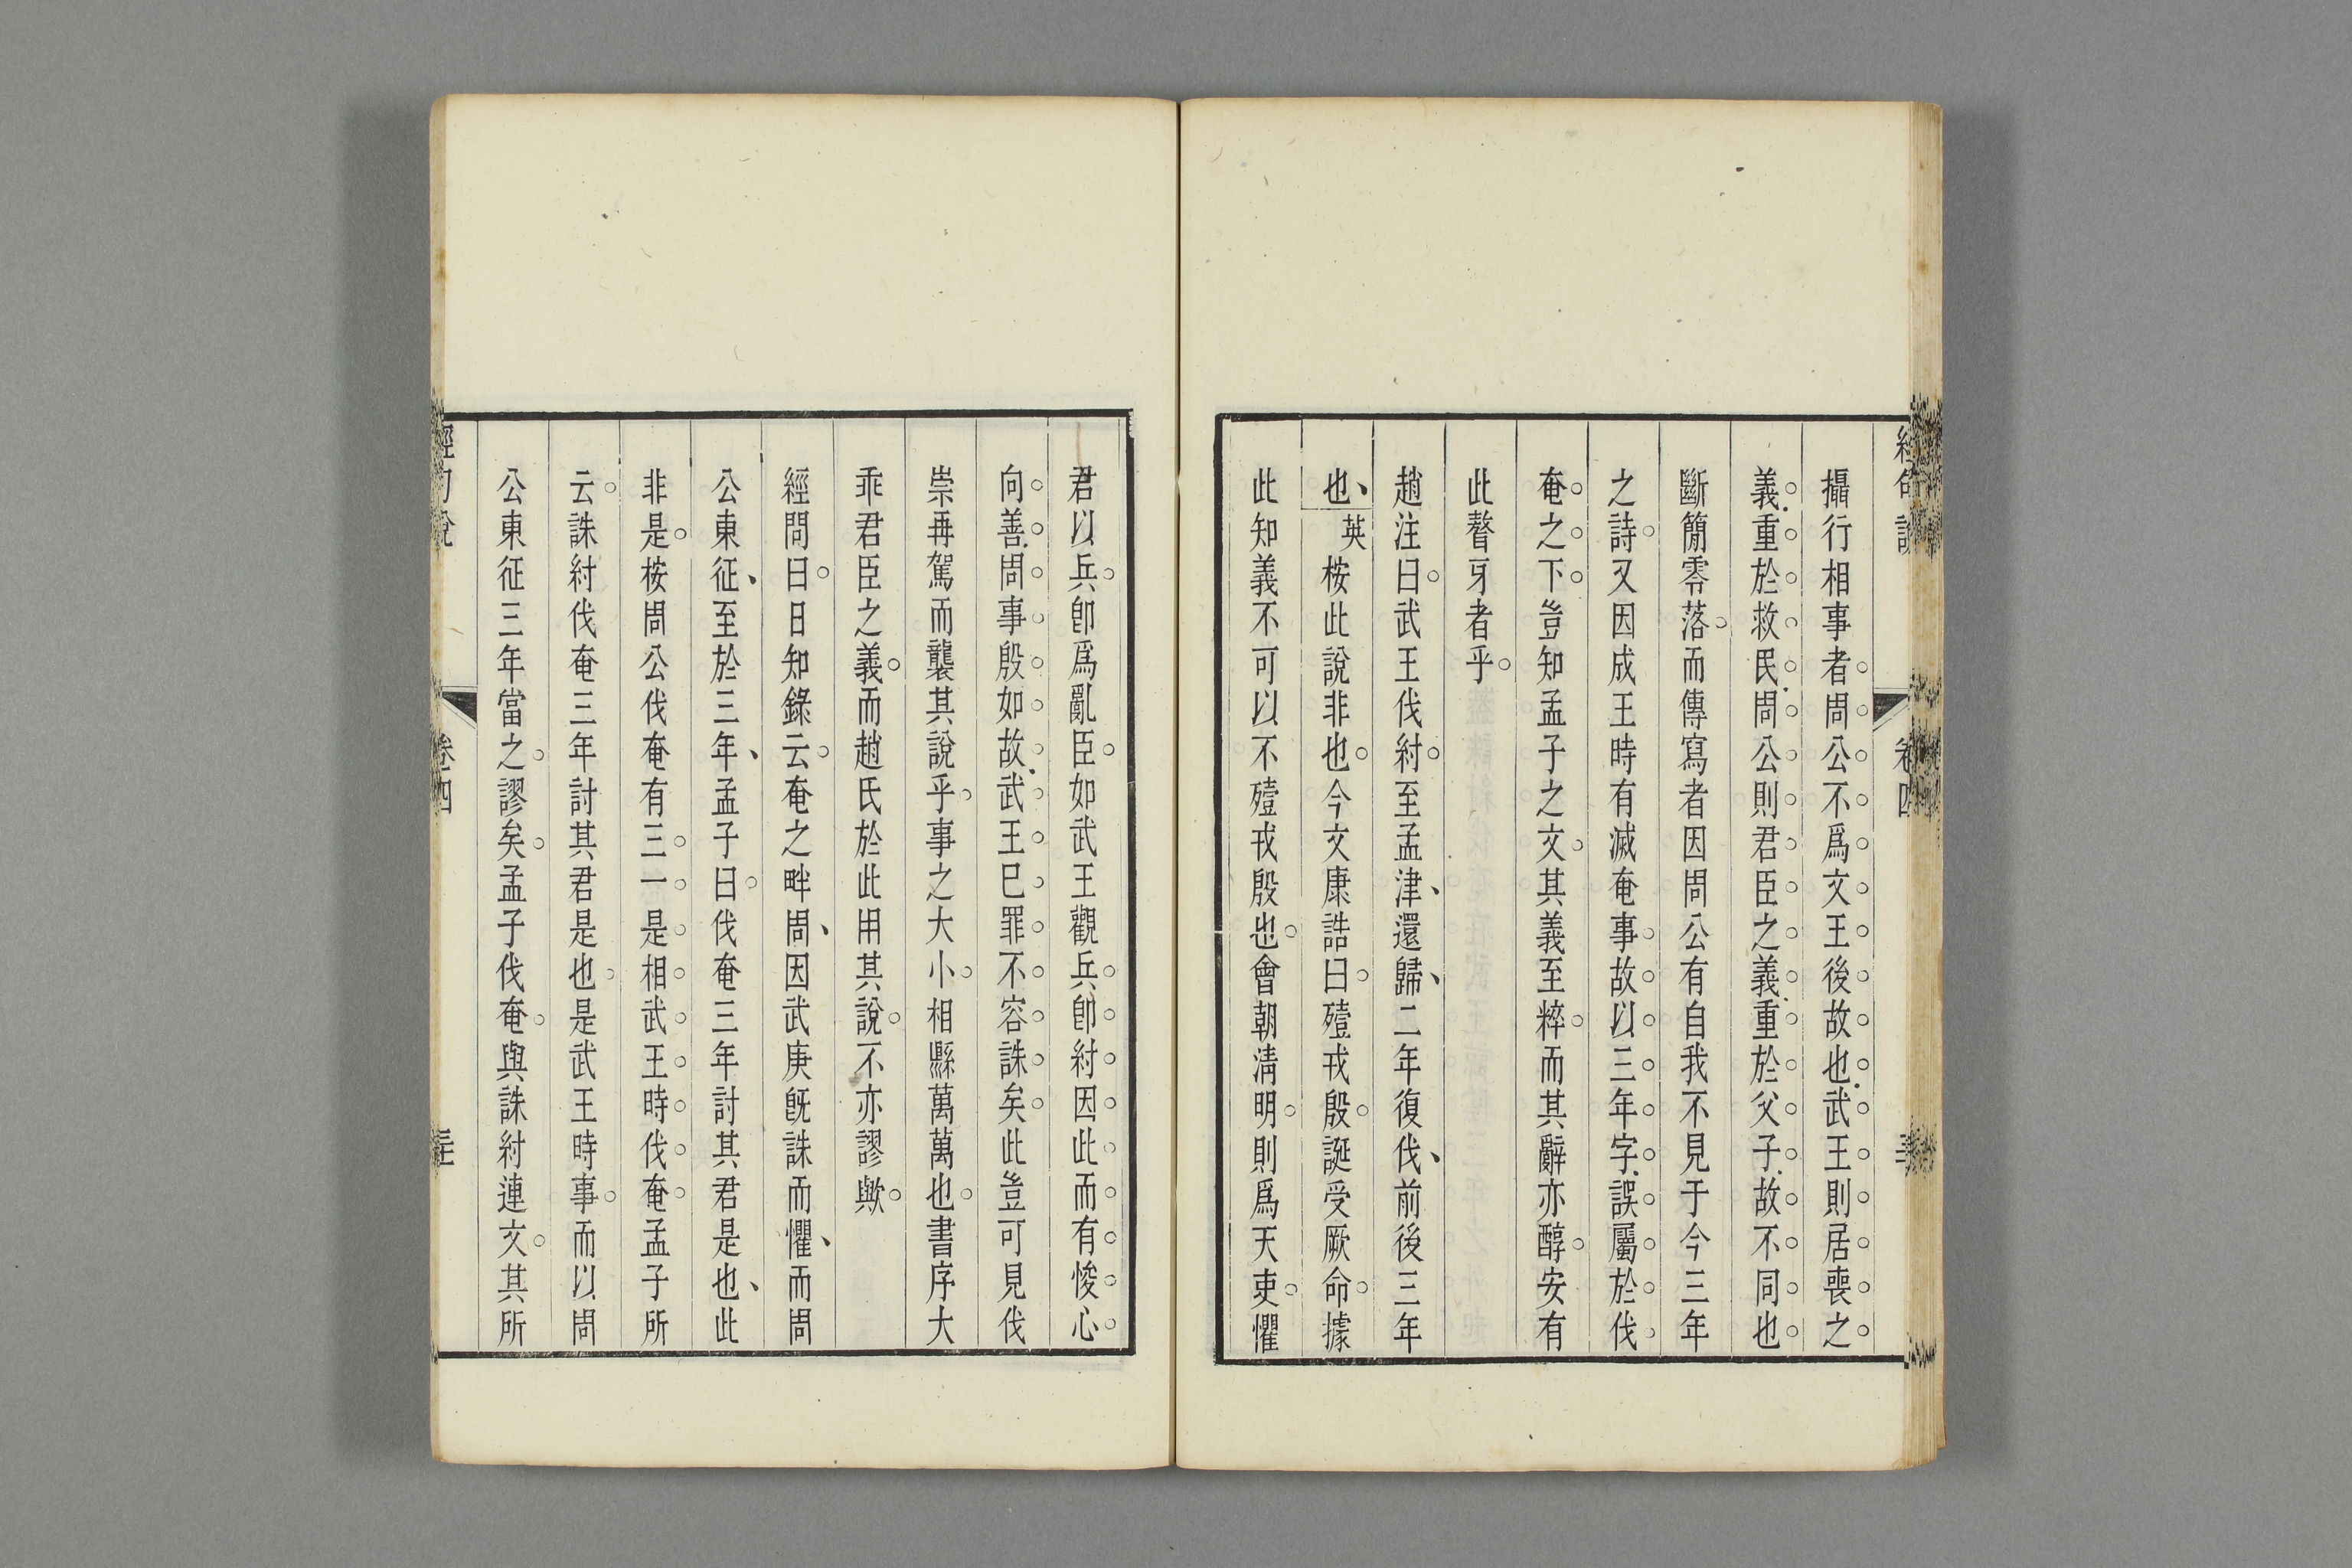 攝行相事者周公不爲文王後故也武王則居喪之
義重於救民周公則君臣之義重於父子故不同也
斷簡零落而傳寫者因周公有自我不見于今三年
之詩又因成王時有滅奄事故以三年字誤屬於伐
奄之下豈知孟子之文其義至粹而其辭亦醇安有
此聱牙者乎
趙注曰武王伐紂至孟津還歸二年復伐前後三年
也英桉此說非也今文康誥曰殪戎殷誕受厥命據
此知義不可以不殪戎殷也會朝淸明則爲天吏懼
君以兵卽爲亂臣如武王觀兵卽紂因此而有悛心
向善周事殷如故武王已罪不容誅矣此豈可見伐
崇再駕而襲其說乎事之大小相縣萬萬也書序大
乖君臣之義而趙氏於此用其說不亦謬歟
經問曰日知錄云奄之畔周因武庚旣誅而懼而周
公東征至於三年孟子曰伐奄三年討其君是也此
非是桉周公伐奄有三一是相武王時伐奄孟子所
云誅紂伐奄三年討其君是也是武王時事而以周
公東征三年當之謬矣孟子伐奄與誅紂連文其所
卷四